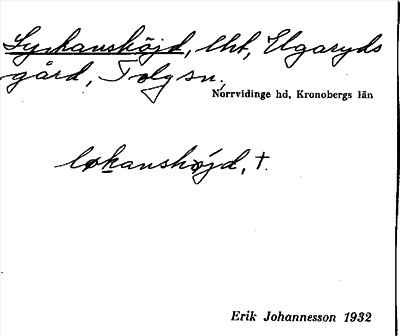 Lyckanshöjd, lht, Elgaryds
gård, Tolg sn,
Norrvidinge hd, Kronobergs län
løkanshøjd, †.
Erik Johannesson 1932